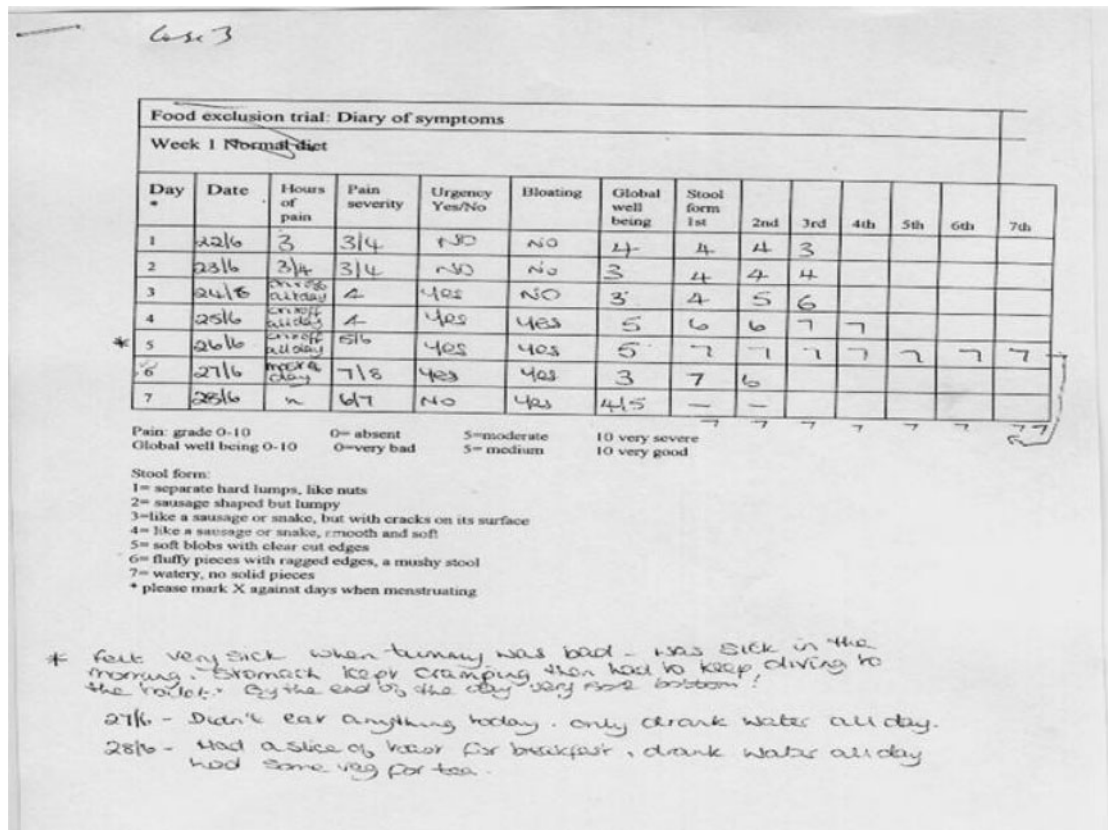 Case 3
Food exclusion trial: Diary of symptoms
Week 1 Normal diet
Day * Date Hours of pain Pain severity Urgency Yes/No Bloating Global well being Stool form 1st 2nd 3rd 4th 5th 6th 7th
1 22/6 3 3/4 NO NO 4 4 4 3
2 23/6 3/4 3/4 NO No 3 4 4 4
3 24/6 on+off allday 4 yes NO 3 4 5 6
4 25/6 on+off allday 4 yes yes 5 6 6 7 7
* 5 26/6 on+off allday 5/6 yes yes 5 7 7 7 7 7 7 7
6 27/6 most of day 7/8 yes yes 3 7 6
7 28/6 " 6/7 NO yes 4/5 — —
7 7 7 7 7 7 7
Pain: grade 0-10 0= absent 5=moderate 10 very severe
Global well being 0-10 0=very bad 5= medium 10 very good
Stool form:
1= separate hard lumps, like nuts
2= sausage shaped but lumpy
3=like a sausage or snake, but with cracks on its surface
4= like a sausage or snake, smooth and soft
5= soft blobs with clear cut edges
6= fluffy pieces with ragged edges, a mushy stool
7= watery, no solid pieces
* please mark X against days when menstruating
* felt very sick when tummy was bad - was sick in the
morning. Stomach kept cramping then had to keep diving to
the toilet. By the end of the day very sore bottom!
27/6 - Didn't eat anything today. only drank water all day.
28/6 - Had a slice of toast for breakfast, drank water all day
had some veg for tea.